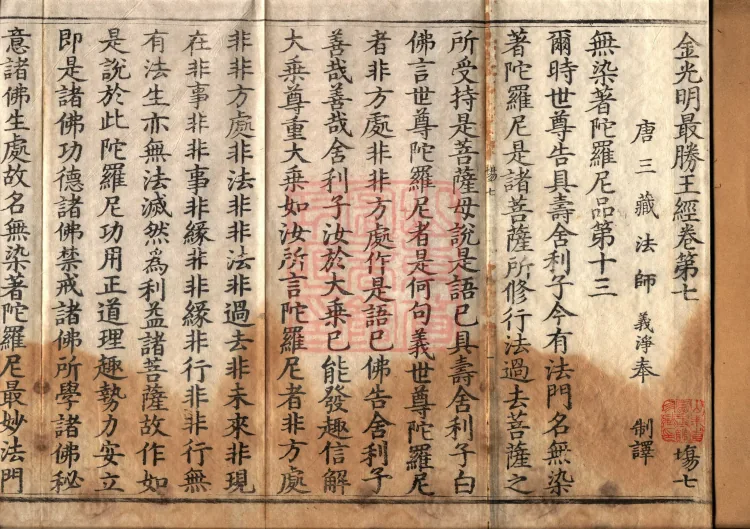 金光明最勝王經卷第七 塲七
唐三藏法師 義淨 奉 制譯
無染著陀羅尼品第十三
爾時世尊告具壽舍利子今有法門名無染
著陀羅尼是諸菩薩所修行法過去菩薩之
塲七
所受持是菩薩母說是語已具壽舍利子白
佛言世尊陀羅尼者是何句義世尊陀羅尼
者非方處非非方處作是語已佛告舍利子
善哉善哉舍利子汝於大乘已能發趣信解
大乘尊重大乘如汝所言陀羅尼者非方處
非非方處非法非非法非過去非未來非現
在非事非非事非緣非非緣非行非非行無
有法生亦無法滅然為利益諸菩薩故作如
是說於此陀羅尼功用正道理趣勢力安立
即是諸佛功德諸佛禁戒諸佛所學諸佛秘
意諸佛生處故名無染著陀羅尼最妙法門